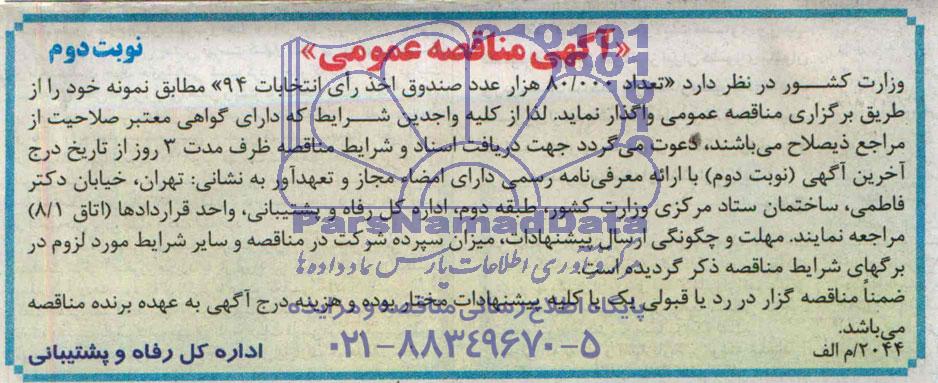 «آگهی مناقصه عمومی»
نوبت دوم
وزارت کشـــور در نظر دارد «تعداد ۸۰/۰۰۰ هزار عدد صندوق اخذ رأی انتخابات ۹۴» مطابق نمونه خود را از
طریق برگزاری مناقصه عمومی واگذار نماید. لذا از کلیه واجدین شـــرایط که دارای گواهی معتبر صلاحیت از
مراجع ذیصلاح می‌باشند، دعوت می‌گردد جهت دریافت اسناد و شرایط مناقصه ظرف مدت ۳ روز از تاریخ درج
آخرین آگهی (نوبت دوم) با ارائه معرفی‌نامه رسمی دارای امضاء مجاز و تعهدآور به نشانی: تهران، خیابان دکتر
فاطمی، ساختمان ستاد مرکزی وزارت کشور، طبقه دوم، اداره کل رفاه و پشتیبانی، واحد قراردادها (اتاق ۸/۱)
ParsNamadData
مراجعه نمایند. مهلت و چگونگی ارسال پیشنهادات، میزان سپرده شرکت در مناقصه و سایر شرایط مورد لزوم در
برگهای شرایط مناقصه ذکر گردیده است.
مرکز فرآوری اطلاعات پارس نماد داده ها
ضمناً مناقصه گزار در رد یا قبولی یک یا کلیه پیشنهادات مختار بوده و هزینه درج آگهی به عهده برنده مناقصه
پایگاه اطلاع رسانی مناقصه و مزایده
می‌باشد.
۲۰۴۴/م الف
۰۲۱-۸۸۳۴۹۶۷۰-۵
اداره کل رفاه و پشتیبانی